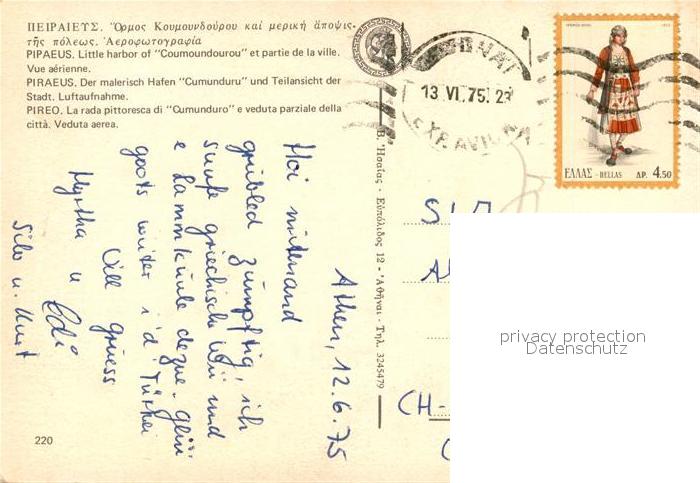 ΠΕΙΡΑΙΕΥΣ. Ὅρμος Κουμουνδούρου καί μερική ἄποψις
τῆς πόλεως. Ἀεροφωτογραφία
PIPAEUS. Little harbor of "Coumoundourou" et partie de la ville.
Vue aérienne.
PIRAEUS. Der malerisch Hafen "Cumunduru" und Teilansicht der
Stadt. Luftaufnahme.
PIREO. La rada pittoresca di "Cumunduro" e veduta parziale della
città. Veduta aerea.
13 VI. 75. 2
ΕΛΛΑΣ - HELLAS ΔΡ. 4.50
Β. Ἠσαΐας - Εὐπόλιδος 12 - Ἀθῆναι - Τηλ. 3245479
Athen, 12.6.75
Hoi mitenand
zümpftig, ich
suufe griechische Wii und
e Lammkeule dezue.
goots witer i d'Türkei
Vill Grüess
Myrtha u Edi
Silv u. Kurt
CH-
220
privacy protection
Datenschutz